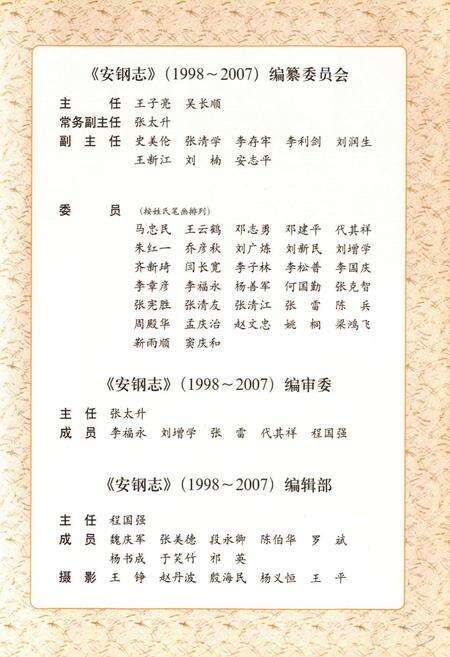 《安钢志》(1998～2007) 编纂委员会
主 任 王子亮 吴长顺
常务副主任 张太升
副 主 任 史美伦 张清学 李存牢 李利剑 刘润生
王新江 刘 楠 安志平
委 员 (按姓氏笔画排列)
马忠民 王云鹤 邓志勇 邓建平 代其祥
朱红一 乔彦秋 刘广炼 刘新民 刘增学
齐新琦 闫长宽 李子林 李松普 李国庆
李章彦 李福永 杨善军 何国勤 张克智
张宪胜 张清友 张清江 张 雷 陈 兵
周殿华 孟庆冶 赵文忠 姚 桐 梁鸿飞
靳雨顺 窦庆和
《安钢志》(1998～2007) 编审委
主 任 张太升
成 员 李福永 刘增学 张 雷 代其祥 程国强
《安钢志》(1998～2007) 编辑部
主 任 程国强
成 员 魏庆军 张美德 段永卿 陈伯华 罗 斌
杨书成 于笑竹 祁 英
摄 影 王 铮 赵丹波 殷海民 杨义恒 王 平